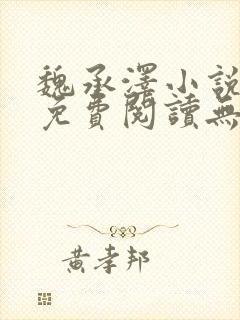 魏承澤小說
免費閱讀無
黃孝邦